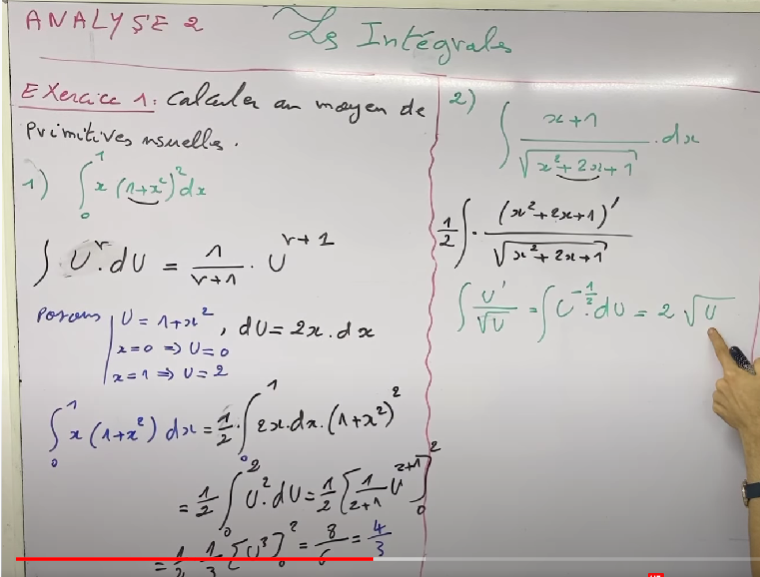 ANALYSE 2
Les Intégrales
Exercice 1: Calculer au moyen de
Primitives usuelles.
1) ∫₀¹ x (1+x²)² dx
∫ U^r . dU = 1/(r+1) · U^(r+1)
Posons | U = 1+x² , dU = 2x . dx
x=0 ⇒ U=0
x=1 ⇒ U=2
∫₀¹ x (1+x²) dx = 1/2 · ∫₀¹ 2x.dx.(1+x²)²
= 1/2 ∫₀² U² . dU = 1/2 [1/(2+1) U^(2+1)]₀²
= 1/2 · 1/3 [U³]₀² = 8/6 = 4/3
2) ∫ (x+1)/√(x²+2x+1) . dx
1/2 ∫ · (x²+2x+1)'/√(x²+2x+1)
∫ U'/√U = ∫ U^(-1/2) . dU = 2 √U